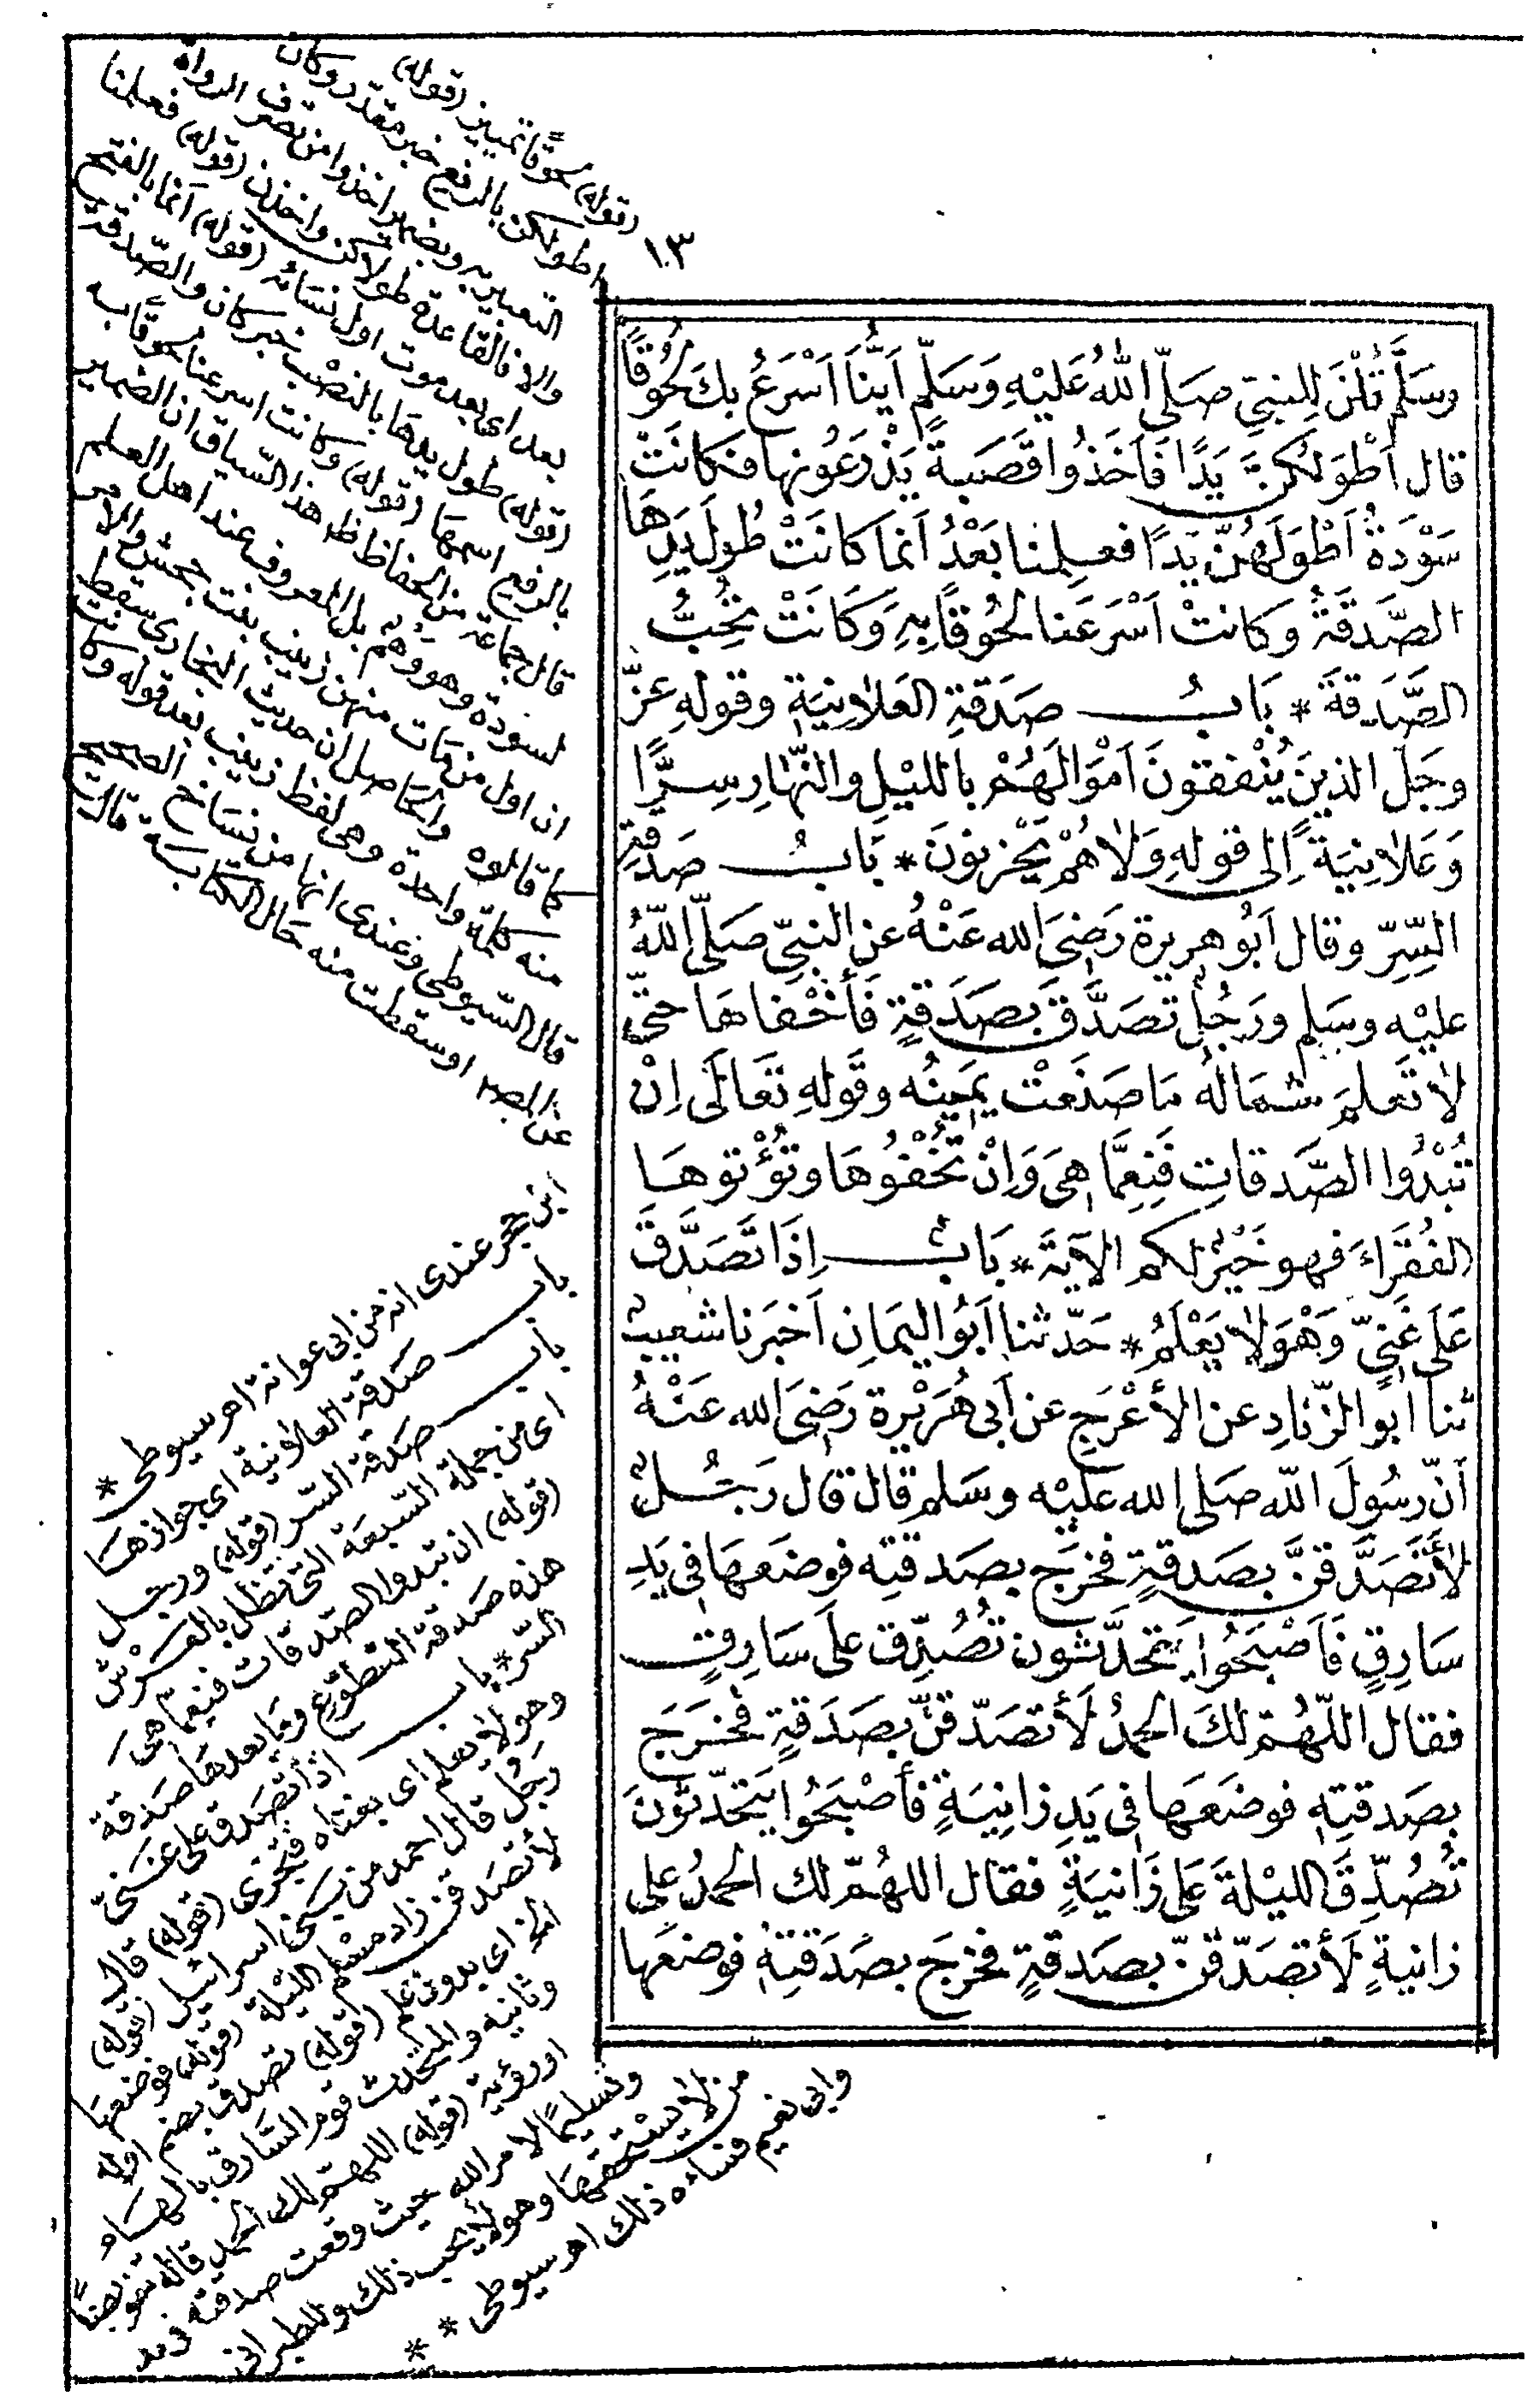 ١٠٣
وسَلَّمَ قُلْنَ لِلنبيِّ صَلَّى اللهُ عَلَيْهِ وَسَلَّمِ اَيُّنَا اَسْرَعُ بِكَ لُحُوقًا
قال اَطْوَلُكُنَّ يَدًا فَاَخَذُوا قَصَبةً يَذْرَعُونها فكَانَتْ
سَوْدَةُ اَطْوَلَهُنَّ يَدًا فعلِمنا بَعْدُ اَنما كَانَتْ طُولَ يَدِهَا
الصَّدَقَةُ وكانتْ اَسْرَعَنا لُحُوقًا بِهِ وَكَانَتْ تُحِبُّ
الصَّدَقةَ * بَابُ صَدَقَةِ العَلانِيَةِ وقولِهِ عَزَّ
وجَلَّ الذينَ يُنْفقونَ اَمْوَالَهُمْ بالليْلِ والنَّهَارِ سِرًّا
وَعَلانِيَةً إلى قولهِ وَلاهُمْ يَحْزنونَ * بَابُ صَدَقةِ
السِّرِّ وقال اَبُو هريرة رَضِيَ الله عَنْهُ عن النبيِّ صَلَّى اللهُ
عليْه وسَلم ورَجُلٌ تصَدَّقَ بصَدَقةٍ فَأَخْفاهَا حتَّى
لا تَعلمَ شمَالُهُ مَا صَنَعَتْ يَمِينُه وقَولِهِ تَعَالَى اِنْ
تُبْدُوا الصَّدقاتِ فَنِعِمَّا هِىَ وَاِنْ تُخْفُوهَا وتُؤْتوهَا
الفُقَرَاءَ فهو خَيْرٌ لكم الآيَةَ * بَابٌ اِذَا تَصَدَّقَ
عَلَى غَنِيٍّ وَهْوَ لا يَعْلَمُ * حَدّثنا اَبُو اليمَانِ اَخبَرنا شعيبٌ
ثنا ابو الزّنادِ عن الأَعْرَجِ عن اَبى هُرَيْرةَ رَضِيَ الله عَنْهُ
اَنّ رسُولَ اللّه صَلى الله عليْه وسَلم قال قال رَجُلٌ
لأَتَصَدَّقَنَّ بصَدقةٍ فخرَج بصَدقتِه فوضَعهَا في يَدِ
سَارِقٍ فَاَصْبَحُوا يَتَحَدَّثون تُصُدِّق علَى سَارِقٍ
فقال اللّهُمّ لكَ الحمدُ لَأتصَدّقنَّ بصَدَقةٍ فخرَجَ
بصَدقتِهِ فوضَعَها في يَدِ زانِيَةٍ فأَصْبَحُوا يَتحدّثونَ
تُصُدِّقَ الليْلةَ عَلى زَانيَةٍ فقال اللهُمّ لك الحمدُ على
زانيةٍ لَأتصَدّقنّ بصَدقةٍ فخرَجَ بصَدَقتِهِ فوضعَها
(قوله) لحوقًا تمييز (قوله)
اطولكن بالرفع خبر مقدر وكان
التعبير به وبضمير اخذوا من تصرف الرواة
والا فالقاعدة طولاكن واخذن (قوله) فعلمنا
بعد اى بعد موت اول نسائه (قوله) انما بالفتح
(قوله) طول يدها بالنصب خبر كان والصدقة
بالرفع اسمها (قوله) وكانت اسرعنا لحوقا به
قال جماعة من الحفاظ ظاهر هذا السياق ان الضمير
لسودة وهو وهم بل المعروف عند اهل العلم
ان اول من مات منهن زينب بنت جحش والامر
كما قالوه والحاصل ان حديث البخارى سقط
منه كلمة واحدة وهى لفظ زينب بعد قوله وكانت
قال السيوطى وعندى انها من نساخ الصحيح
او سقطت منه حال الكتابة قال
ابن حجر عندى انه من ابى عوانة اهـ سيوطى *
باب صَدقة العلانية اى جوازها
باب صَدقة السّر (قوله) ورجل
اى من جملة السّبعَة التى تظل بالعرش
(قوله) ان تبدوا الصّدقات فنعمّا هىَ
هذه صَدقة التطوّع وما بعدها صَدقة
السّر * باب اذا تصَدق على غنىّ
وهو لا يعلم اى بغناه فتجزى (قوله) قال
رجُل قال احمد من بنى اسرائيل (قوله)
لأتصَدقن زاد مسْلم الليْلة (قوله) فوضعهَا
الخ اى بدون علم (قوله) تصدق بضم اوله
وثانيه والمتحدث قوم السَّارق بالهسَام
اورؤية (قوله) اللهمّ لك الحمد قاله تفويضًا
وتسليمًا لامر الله حيث وقعت صدقته فى يد
من لا يستحقها وهو لا يحب ذلك وللطبرانى
وابى نعيم فساءه ذلك اهـ سيوطى * *
*